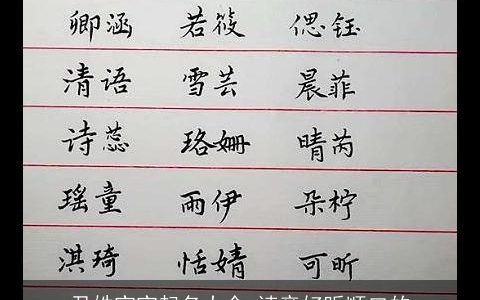 卿涵 若筱 偲钰
清语 雪芸 晨菲
诗蕊 珞姗 晴芮
瑶童 雨伊 朵柠
淇琦 恬婧 可昕